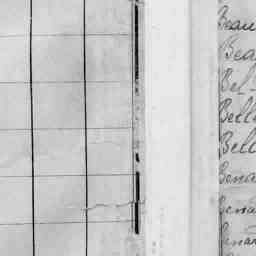 Beau
Bea
Bel
Bell
Bell
Bena
Bena
Bena